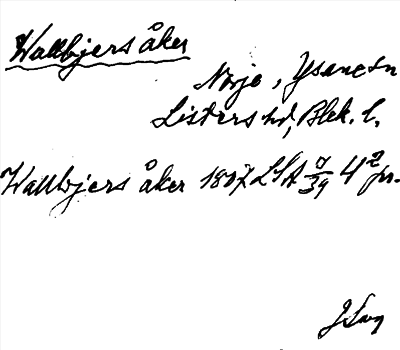 Wallbjers åker
Norje, Ysane sn
Listers hd, Blek. l.
Wallbjers åker 1807 LSA